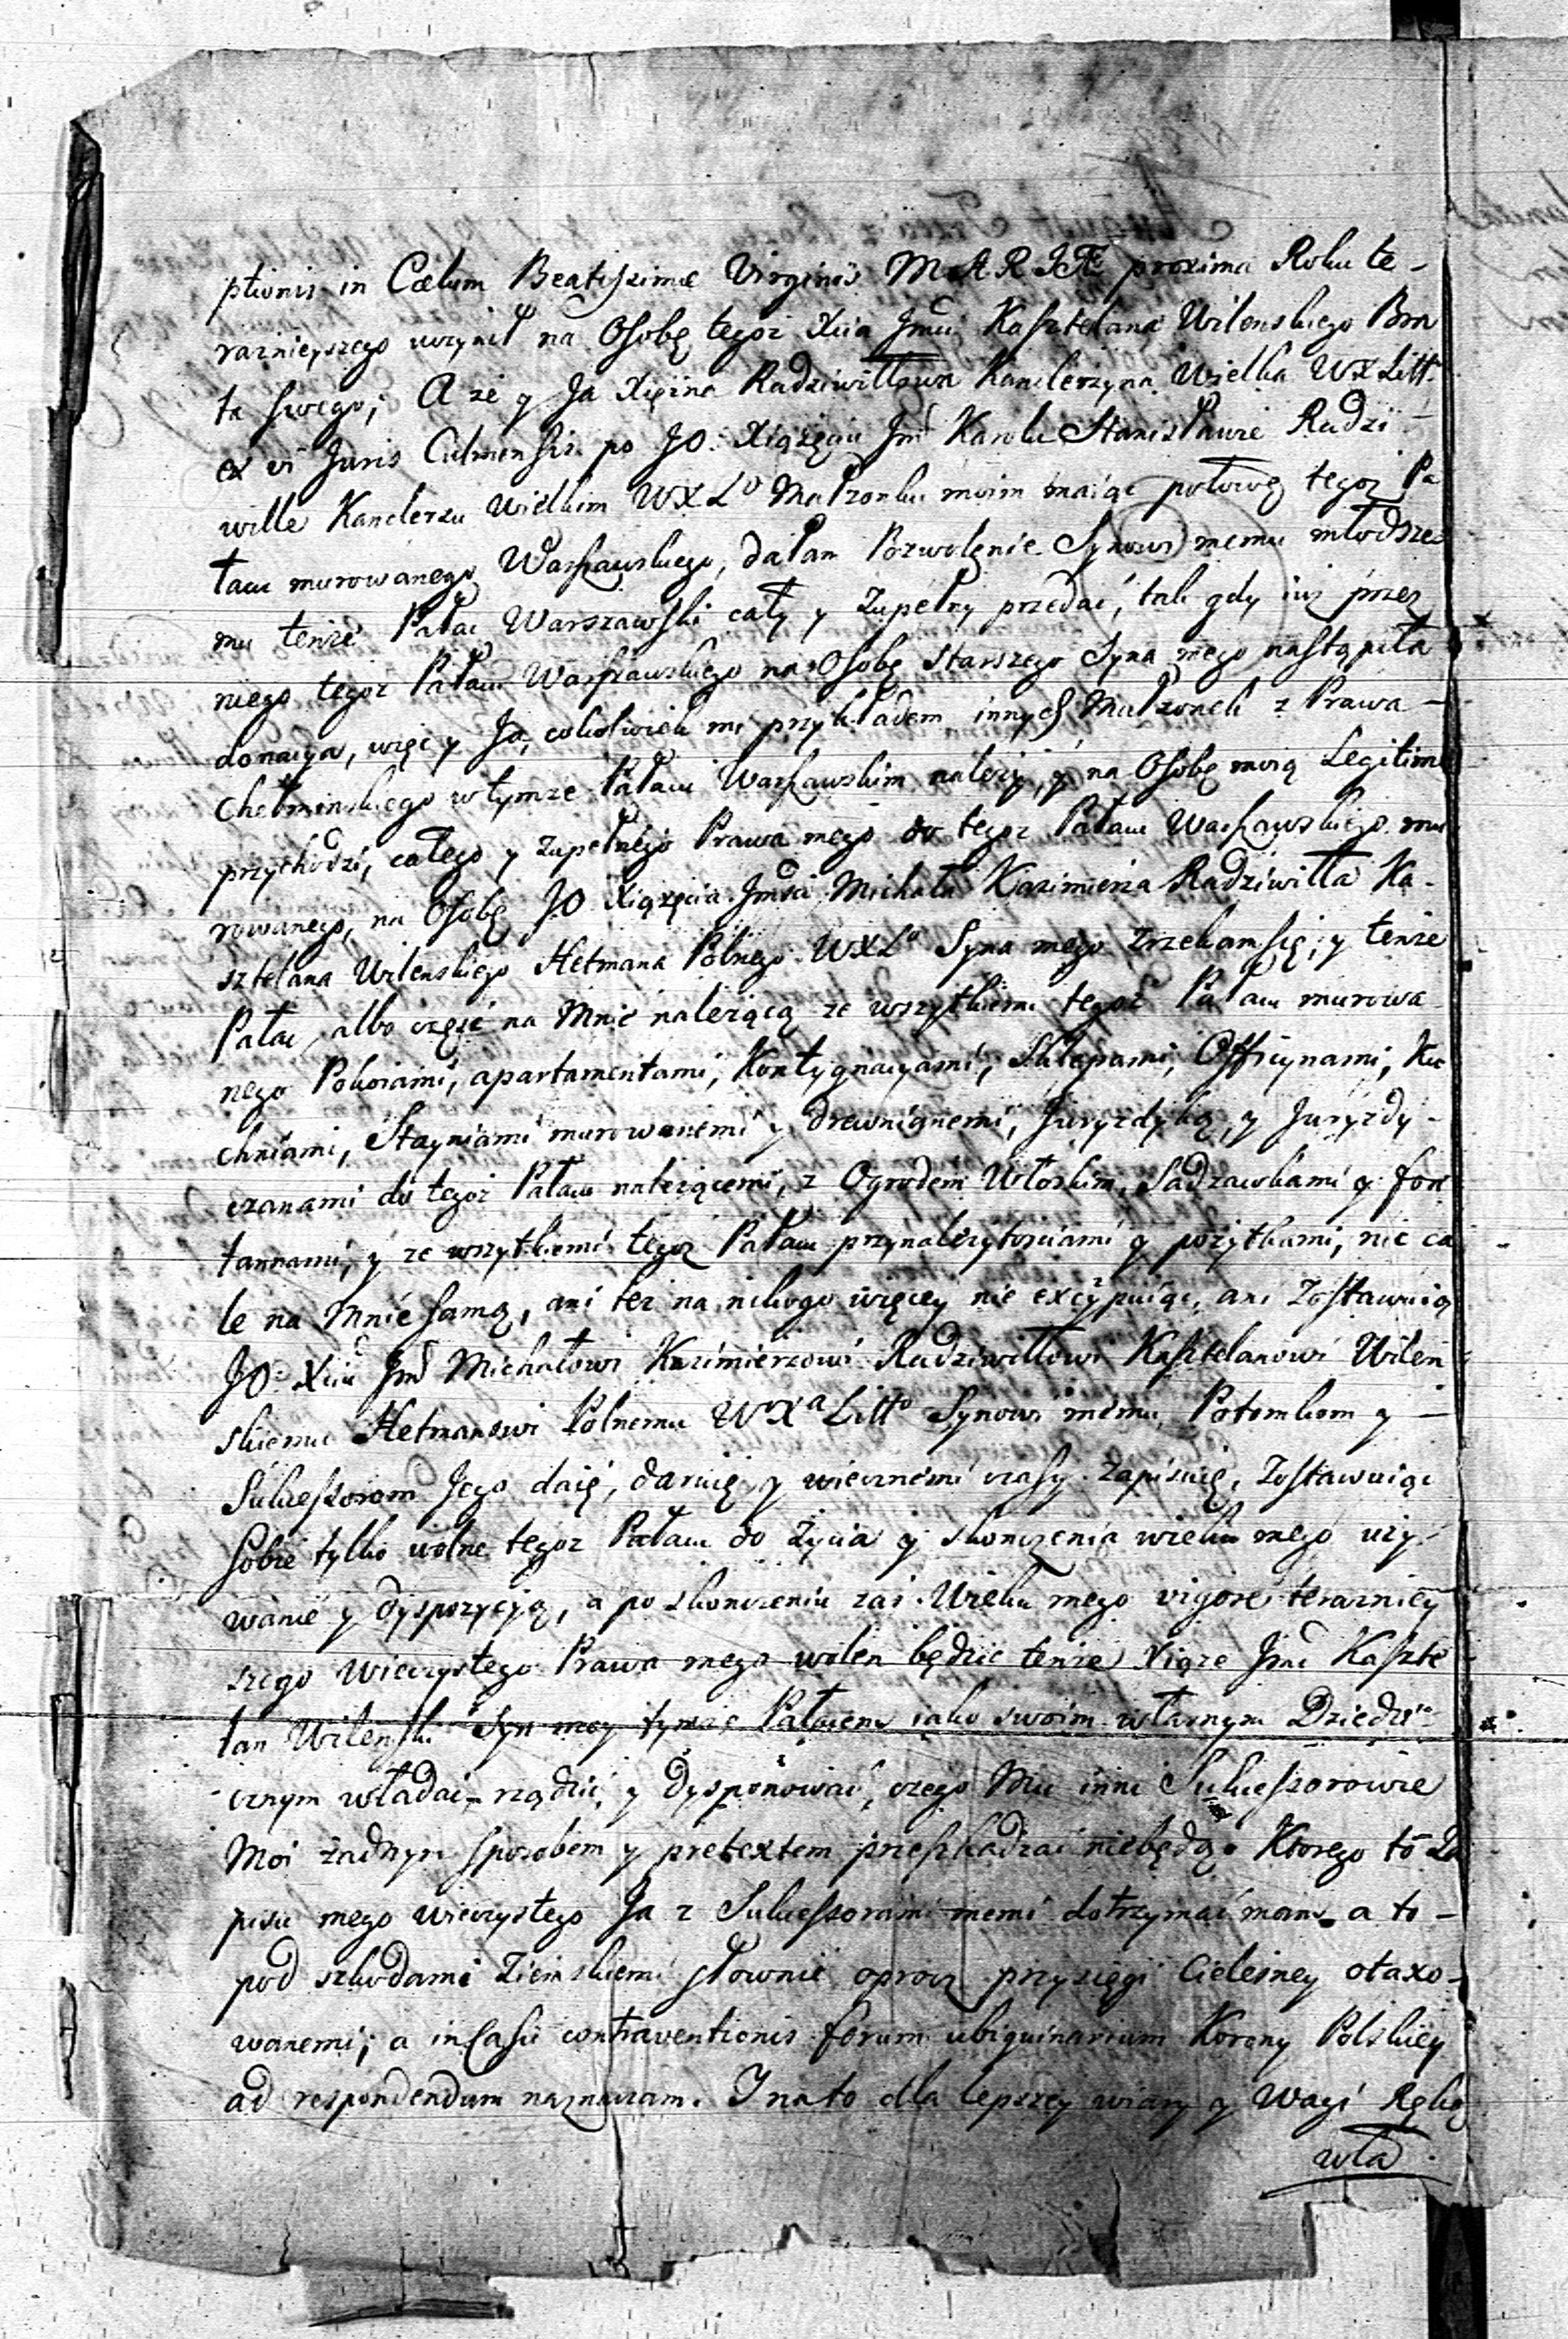 ptionis in Cœlum Beatissimæ Virginis MARIÆ proxima Roku te-
razniejszego uczynił na Osobę tegoż Xcia Jmci Kasztelana Wilenskiego Bra
ta swego; A że y Ja Xiężna Radziwiłłowa Kanclerzyna Wielka WXLitt:
ex vi Juris Culmensis po JO: Xiążęciu Jmd Karolu Stanisławie Radzi-
wille Kanclerzu Wielkim WXLo Małżonku moim maiąc połowę tegoż Pa
łacu murowanego Warszawskiego, dałam Pozwolenie Synowi memu młodsze
mu tenże Pałac Warszawski cały y zupełny przedać, tak gdy iuż przez
niego tegoż Pałacu Warszawskiego na Osobę starszego Syna mego nastąpiła
donacya, więc y Ja, cokolwiek mi przykładem innych Małżonek z Prawa -
Chełminskiego w tymże Pałacu Warszawskim należy, y na Osobę moią Legitime
przychodzi, całego y zupełnego Prawa mego do tegoż Pałacu Warszawskiego mu
rowanego, na Osobę JO Xiążęcia Jmści Michała Kazimierza Radziwiłła Ka-
sztelana Wilenskiego Hetmana Polnego WXLo Syna mego zrzekam się, y tenże
Pałac, albo część na Mnie należącą ze wszytkiemi tegoż Pałacu murowa
nego Pokoiami, apartamentami, Kontygnacyami, Sklepami, Officynami, Ku
chniami, Stayniami murowanemi y drewnianemi, Juryzdyką, y Juryzdy-
czanami do tegoż Pałacu należącemi, z Ogrodem Włoskim, Sadzawkami y fon
tannami, y ze wszytkiemi tegoż Pałacu przynależytościami y pożytkami, nic ca
le na Mnie samą, ani też na nikogo więcey nie excypuiąc, ani zostawuiąc
JO: Xciu Jmd Michałowi Kazimierzowi Radziwiłłowi Kasztelanowi Wilen
skiemu Hetmanowi Polnemu WXa Litto Synowi memu, Potomkom y -
Sukcessorom Jego daię, daruię, y wiecznemi czasy zapisuię, zostawuiąc
sobie tylko wolne tegoż Pałacu do życia y skonczenia wieku mego uży-
wanie y dyspozycyą, a po skonczeniu zaś Wieku mego vigore teraznicy
szego Wieczystego Prawa mego wolen będzie tenże Xiąże Jmć Kaszte
lan Wilenski Syn moy tymże Pałacem iako swoim własnym Dziedzi-
cznym władać, rządzić, y dysponować, czego Mu inni Sukcessorowie
Moi żadnym sposobem y pretextem przeszkadzać niebędą. Ktorego to Za
pisu mego wieczystego Ja z Sukcessorami memi dotrzymać mam, a to -
pod szkodami Ziemskiemi słownie oprocz przysięgi Cielesney otaxo-
wanemi; a in Casu contraventionis forum ubiquinarium Korony Polskiey
ad respondendum naznaczam. I na to dla lepszey wiary y Wagi Ręką
wła